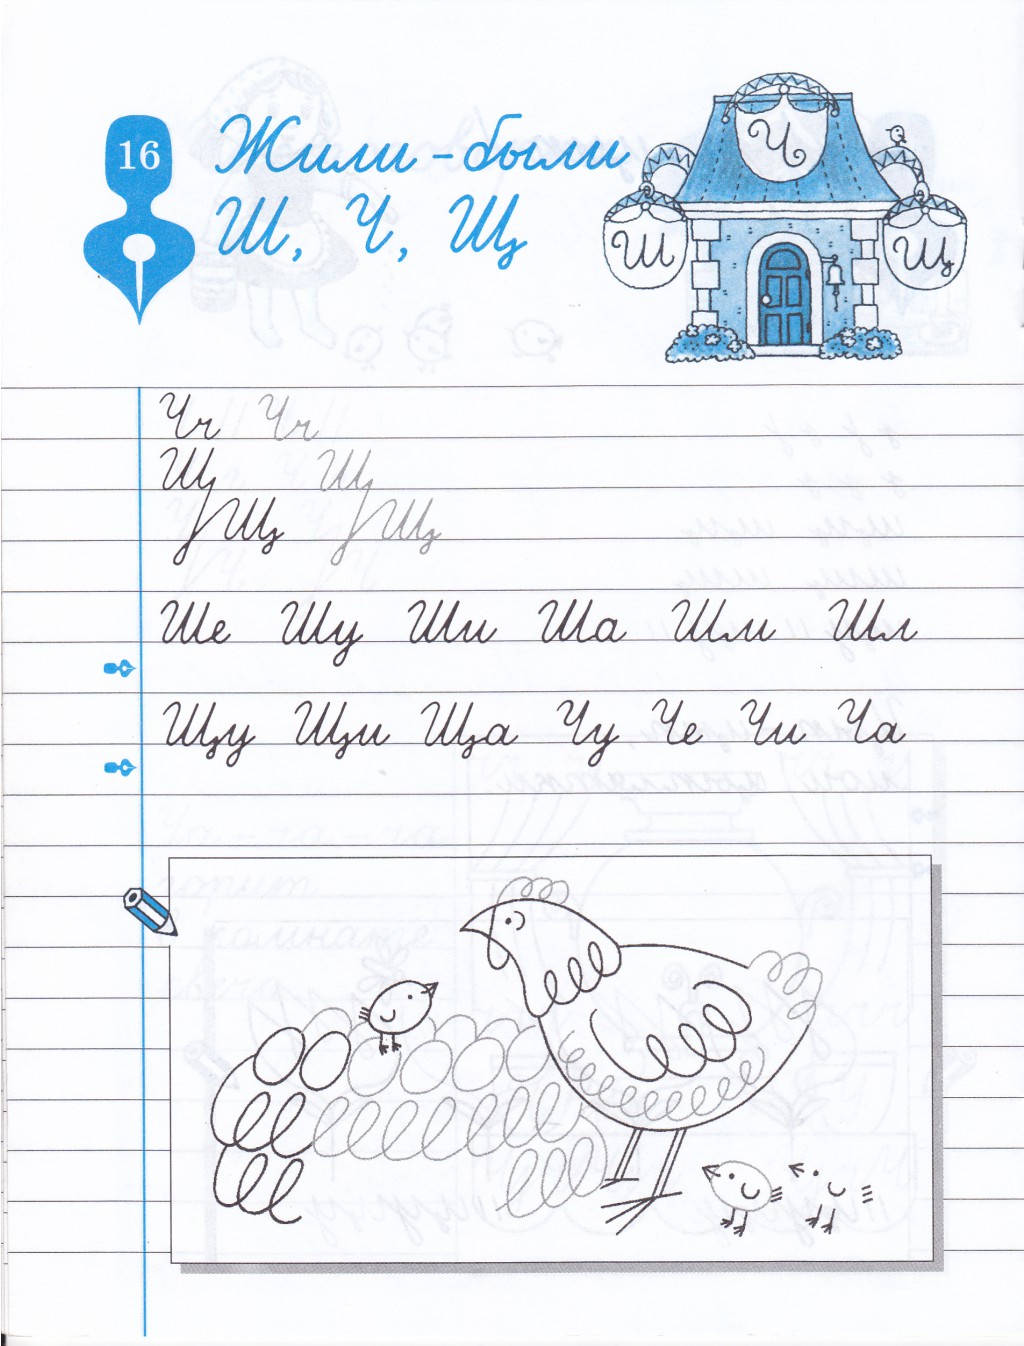 16
Жили-были
Ш, Ч, Щ
Ч
Ш
Щ
Чч Чч
Щ Щ
Щ Щ
Ше Шу Ши Ша Шм Шл
Щу Щи Ща Чу Че Чи Ча